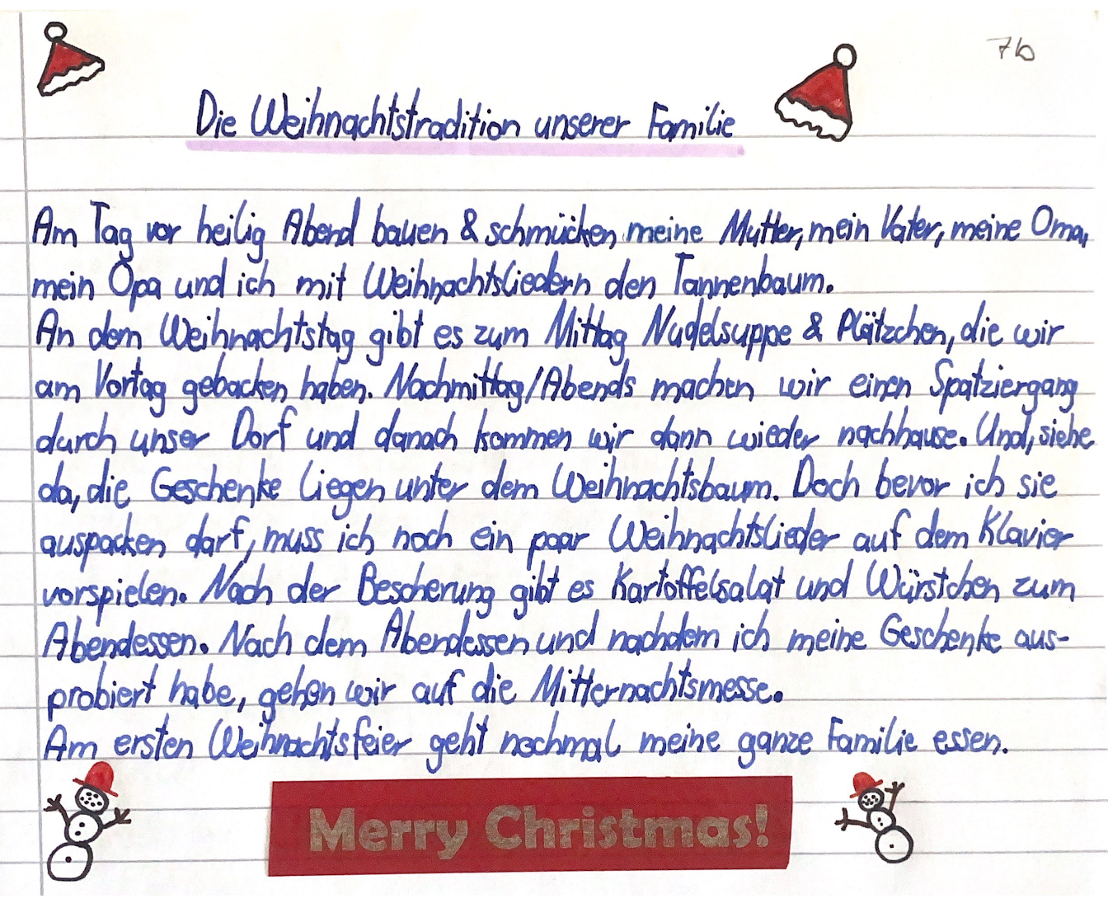 7b
Die Weihnachtstradition unserer Familie
Am Tag vor heilig Abend bauen & schmücken meine Mutter, mein Vater, meine Oma,
mein Opa und ich mit Weihnachtsliedern den Tannenbaum.
An dem Weihnachtstag gibt es zum Mittag Nudelsuppe & Plätzchen, die wir
am Vortag gebacken haben. Nachmittag/Abends machen wir einen Spatziergang
durch unser Dorf und danach kommen wir dann wieder nachhause. Und, siehe
da, die Geschenke liegen unter dem Weihnachtsbaum. Doch bevor ich sie
auspacken darf, muss ich noch ein paar Weihnachtslieder auf dem Klavier
vorspielen. Nach der Bescherung gibt es Kartoffelsalat und Würstchen zum
Abendessen. Nach dem Abendessen und nachdem ich meine Geschenke aus-
probiert habe, gehen wir auf die Mitternachtsmesse.
Am ersten Weihnachtsfeier geht nochmal meine ganze Familie essen.
Merry Christmas!